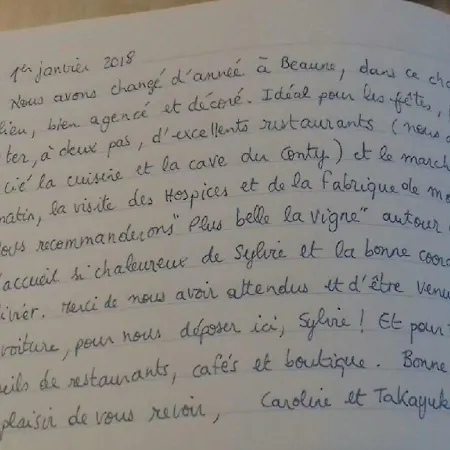 1er janvier 2018
Nous avons changé d'année à Beaune, dans ce cha
lieu, bien agencé et décoré. Idéal pour les fêtes,
ter, à deux pas, d'excellents restaurants (nous a
cié la cuisine et la cave du Conty) et le march
matin, la visite des Hospices et de la fabrique de mo
ous recommanderons "Plus belle la vigne" autour
'accueil si chaleureux de Sylvie et la bonne coord
ivrer. Merci de nous avoir attendus et d'être venu
voiture, pour nous déposer ici, Sylvie ! Et pour
eils de restaurants, cafés et boutique. Bonne
plaisir de vous revoir, Caroline et Takayuk